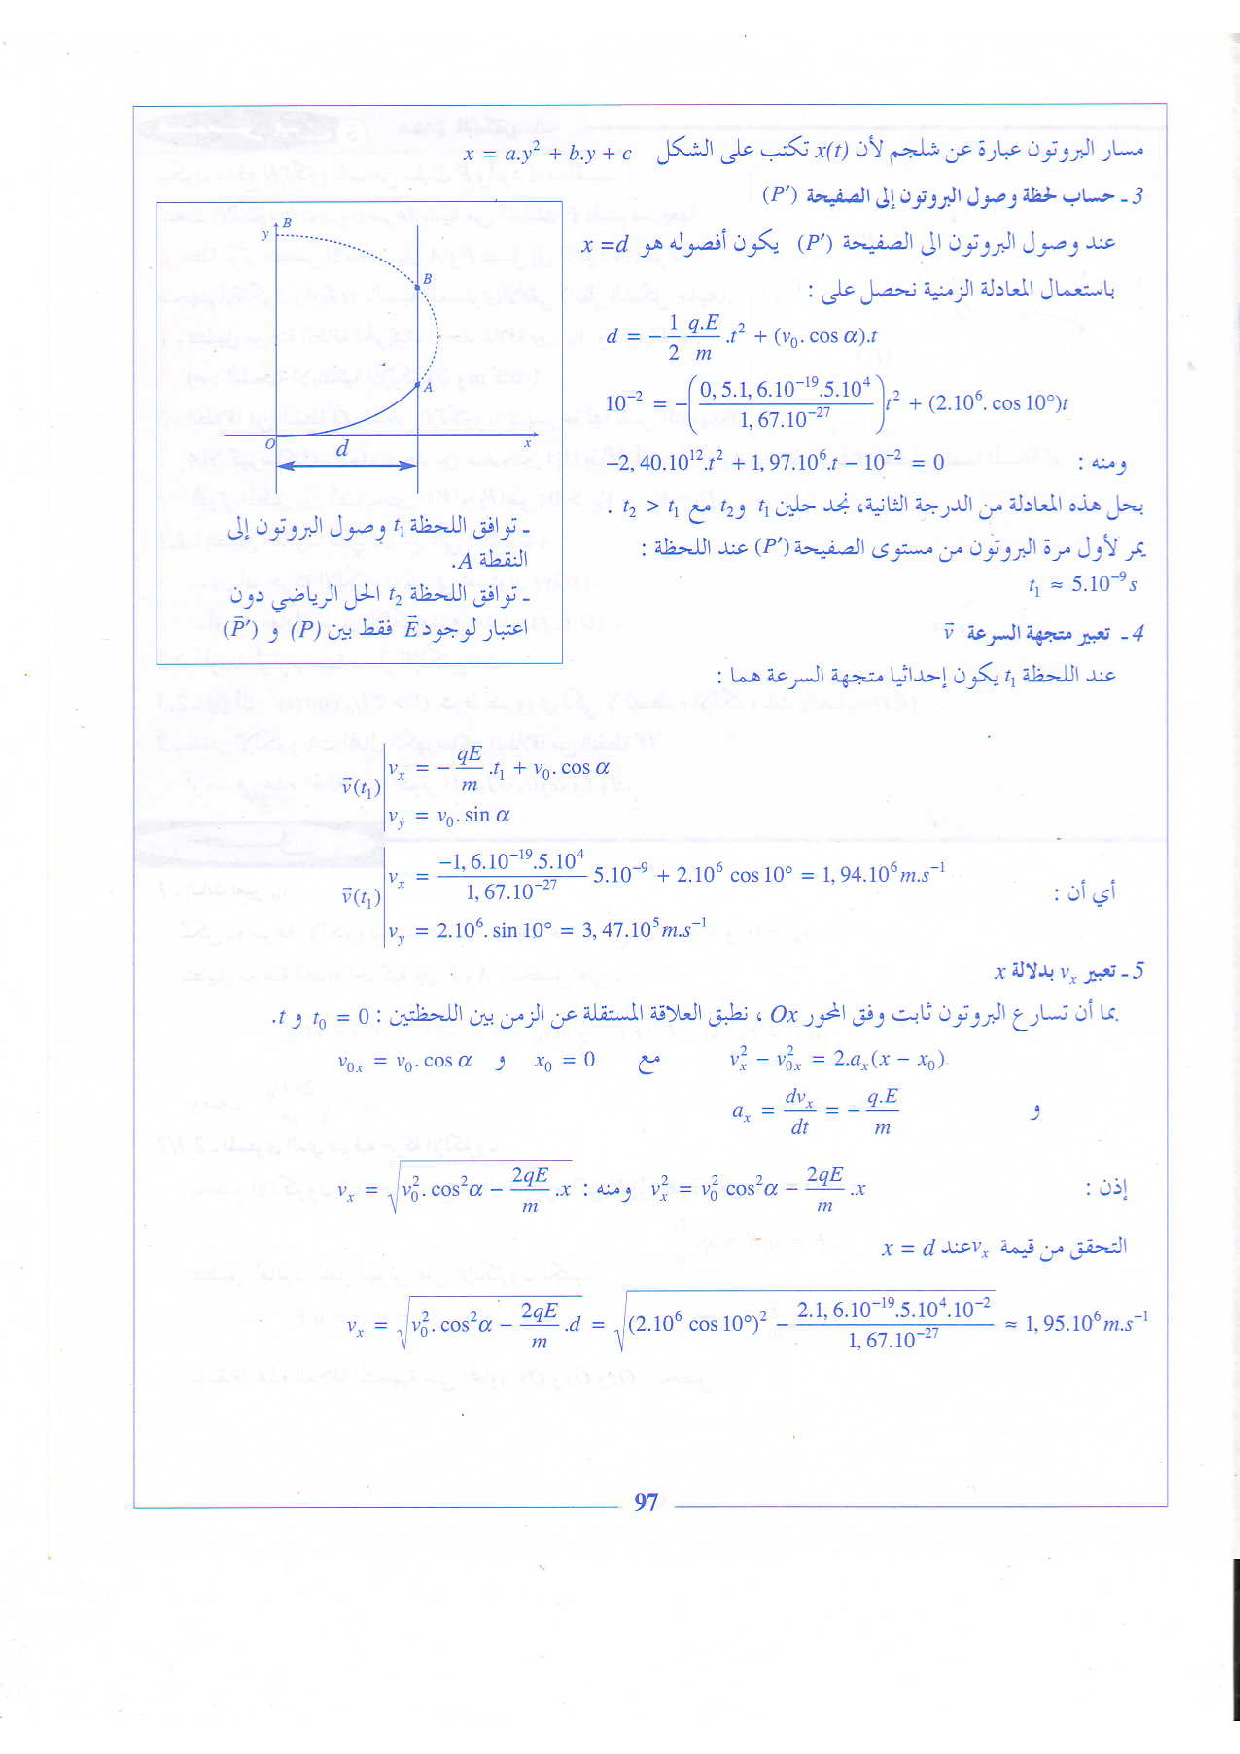 مسار البروتون عبارة عن شلجم لأن x(t) تكتب على الشكل x = a.y² + b.y + c
3 ـ حساب لحظة وصول البروتون إلى الصفيحة (P')
عند وصول البروتون الى الصفيحة (P') يكون أفصوله هو x =d
باستعمال المعادلة الزمنية نحصل على :
d = -\frac{1}{2} \frac{q.E}{m} .t² + (v₀. cos α).t
10⁻² = -\left(\frac{0, 5.1, 6.10^{-19}.5.10^{4}}{1, 67.10^{-27}}\right)t² + (2.10⁶. cos 10°)t
ومنه : -2, 40.10¹².t² + 1, 97.10⁶.t - 10⁻² = 0
بحل هذه المعادلة من الدرجة الثانية، نجد حلين t₁ و t₂ مع t₂ > t₁ .
يمر لأول مرة البروتون من مستوى الصفيحة (P') عند اللحظة :
t₁ ≈ 5.10⁻⁹ s
y
B
B
A
O
d
x
ـ توافق اللحظة t₁ وصول البروتون إلى
النقطة A.
ـ توافق اللحظة t₂ الحل الرياضي دون
اعتبار لوجود \vec{E} فقط بين (P) و (P')
4 ـ تعبير متجهة السرعة \vec{v}
عند اللحظة t₁ يكون إحداثيا متجهة السرعة هما :
\vec{v}(t₁) | v_x = -\frac{qE}{m} .t₁ + v₀. cos α
v_y = v₀. sin α
أي أن : \vec{v}(t₁) | v_x = \frac{-1, 6.10^{-19}.5.10^{4}}{1, 67.10^{-27}} 5.10⁻⁹ + 2.10⁶ cos 10° = 1, 94.10⁶ m.s⁻¹
v_y = 2.10⁶. sin 10° = 3, 47.10⁵ m.s⁻¹
5 ـ تعبير v_x بدلالة x
بما أن تسارع البروتون ثابت وفق المحور Ox ، نطبق العلاقة المستقلة عن الزمن بين اللحظتين : t₀ = 0 و t.
v_x² - v_{0x}² = 2.a_x(x - x₀) مع x₀ = 0 و v_{0x} = v₀. cos α
و a_x = \frac{dv_x}{dt} = -\frac{q.E}{m}
إذن : v_x² = v₀² cos²α - \frac{2qE}{m} .x ومنه : v_x = \sqrt{v₀². cos²α - \frac{2qE}{m} .x}
التحقق من قيمة v_x عند x = d
v_x = \sqrt{v₀². cos²α - \frac{2qE}{m} .d} = \sqrt{(2.10⁶ cos 10°)² - \frac{2.1, 6.10^{-19}.5.10^{4}.10^{-2}}{1, 67.10^{-27}}} ≈ 1, 95.10⁶ m.s⁻¹
97